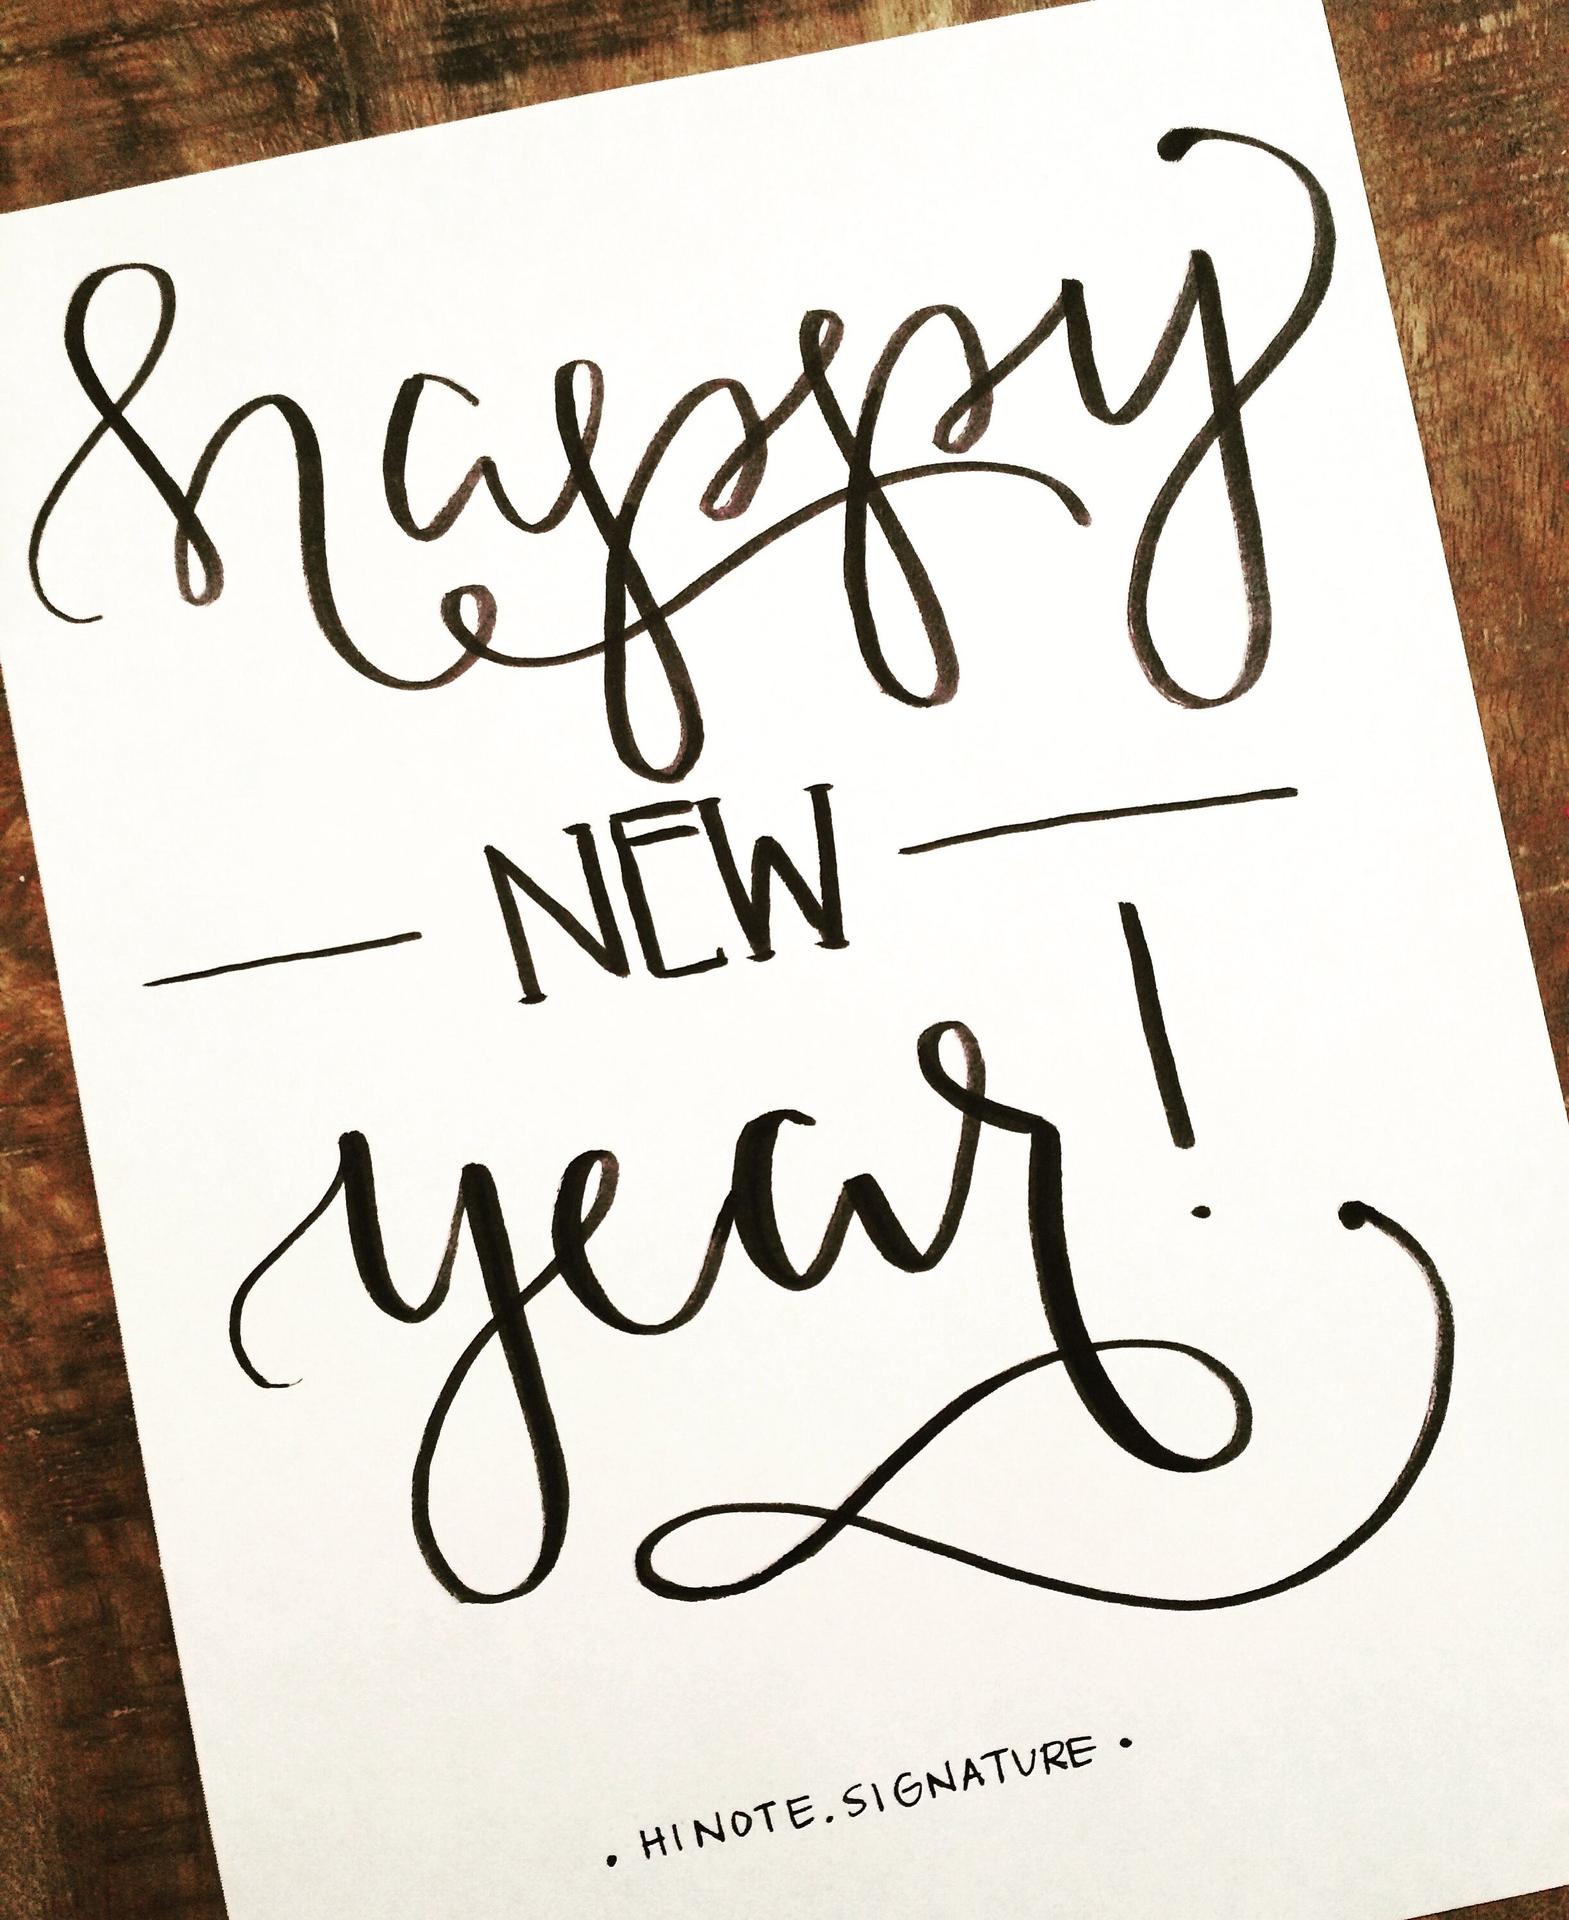 happy
NEW
year!
. HINOTE.SIGNATURE .